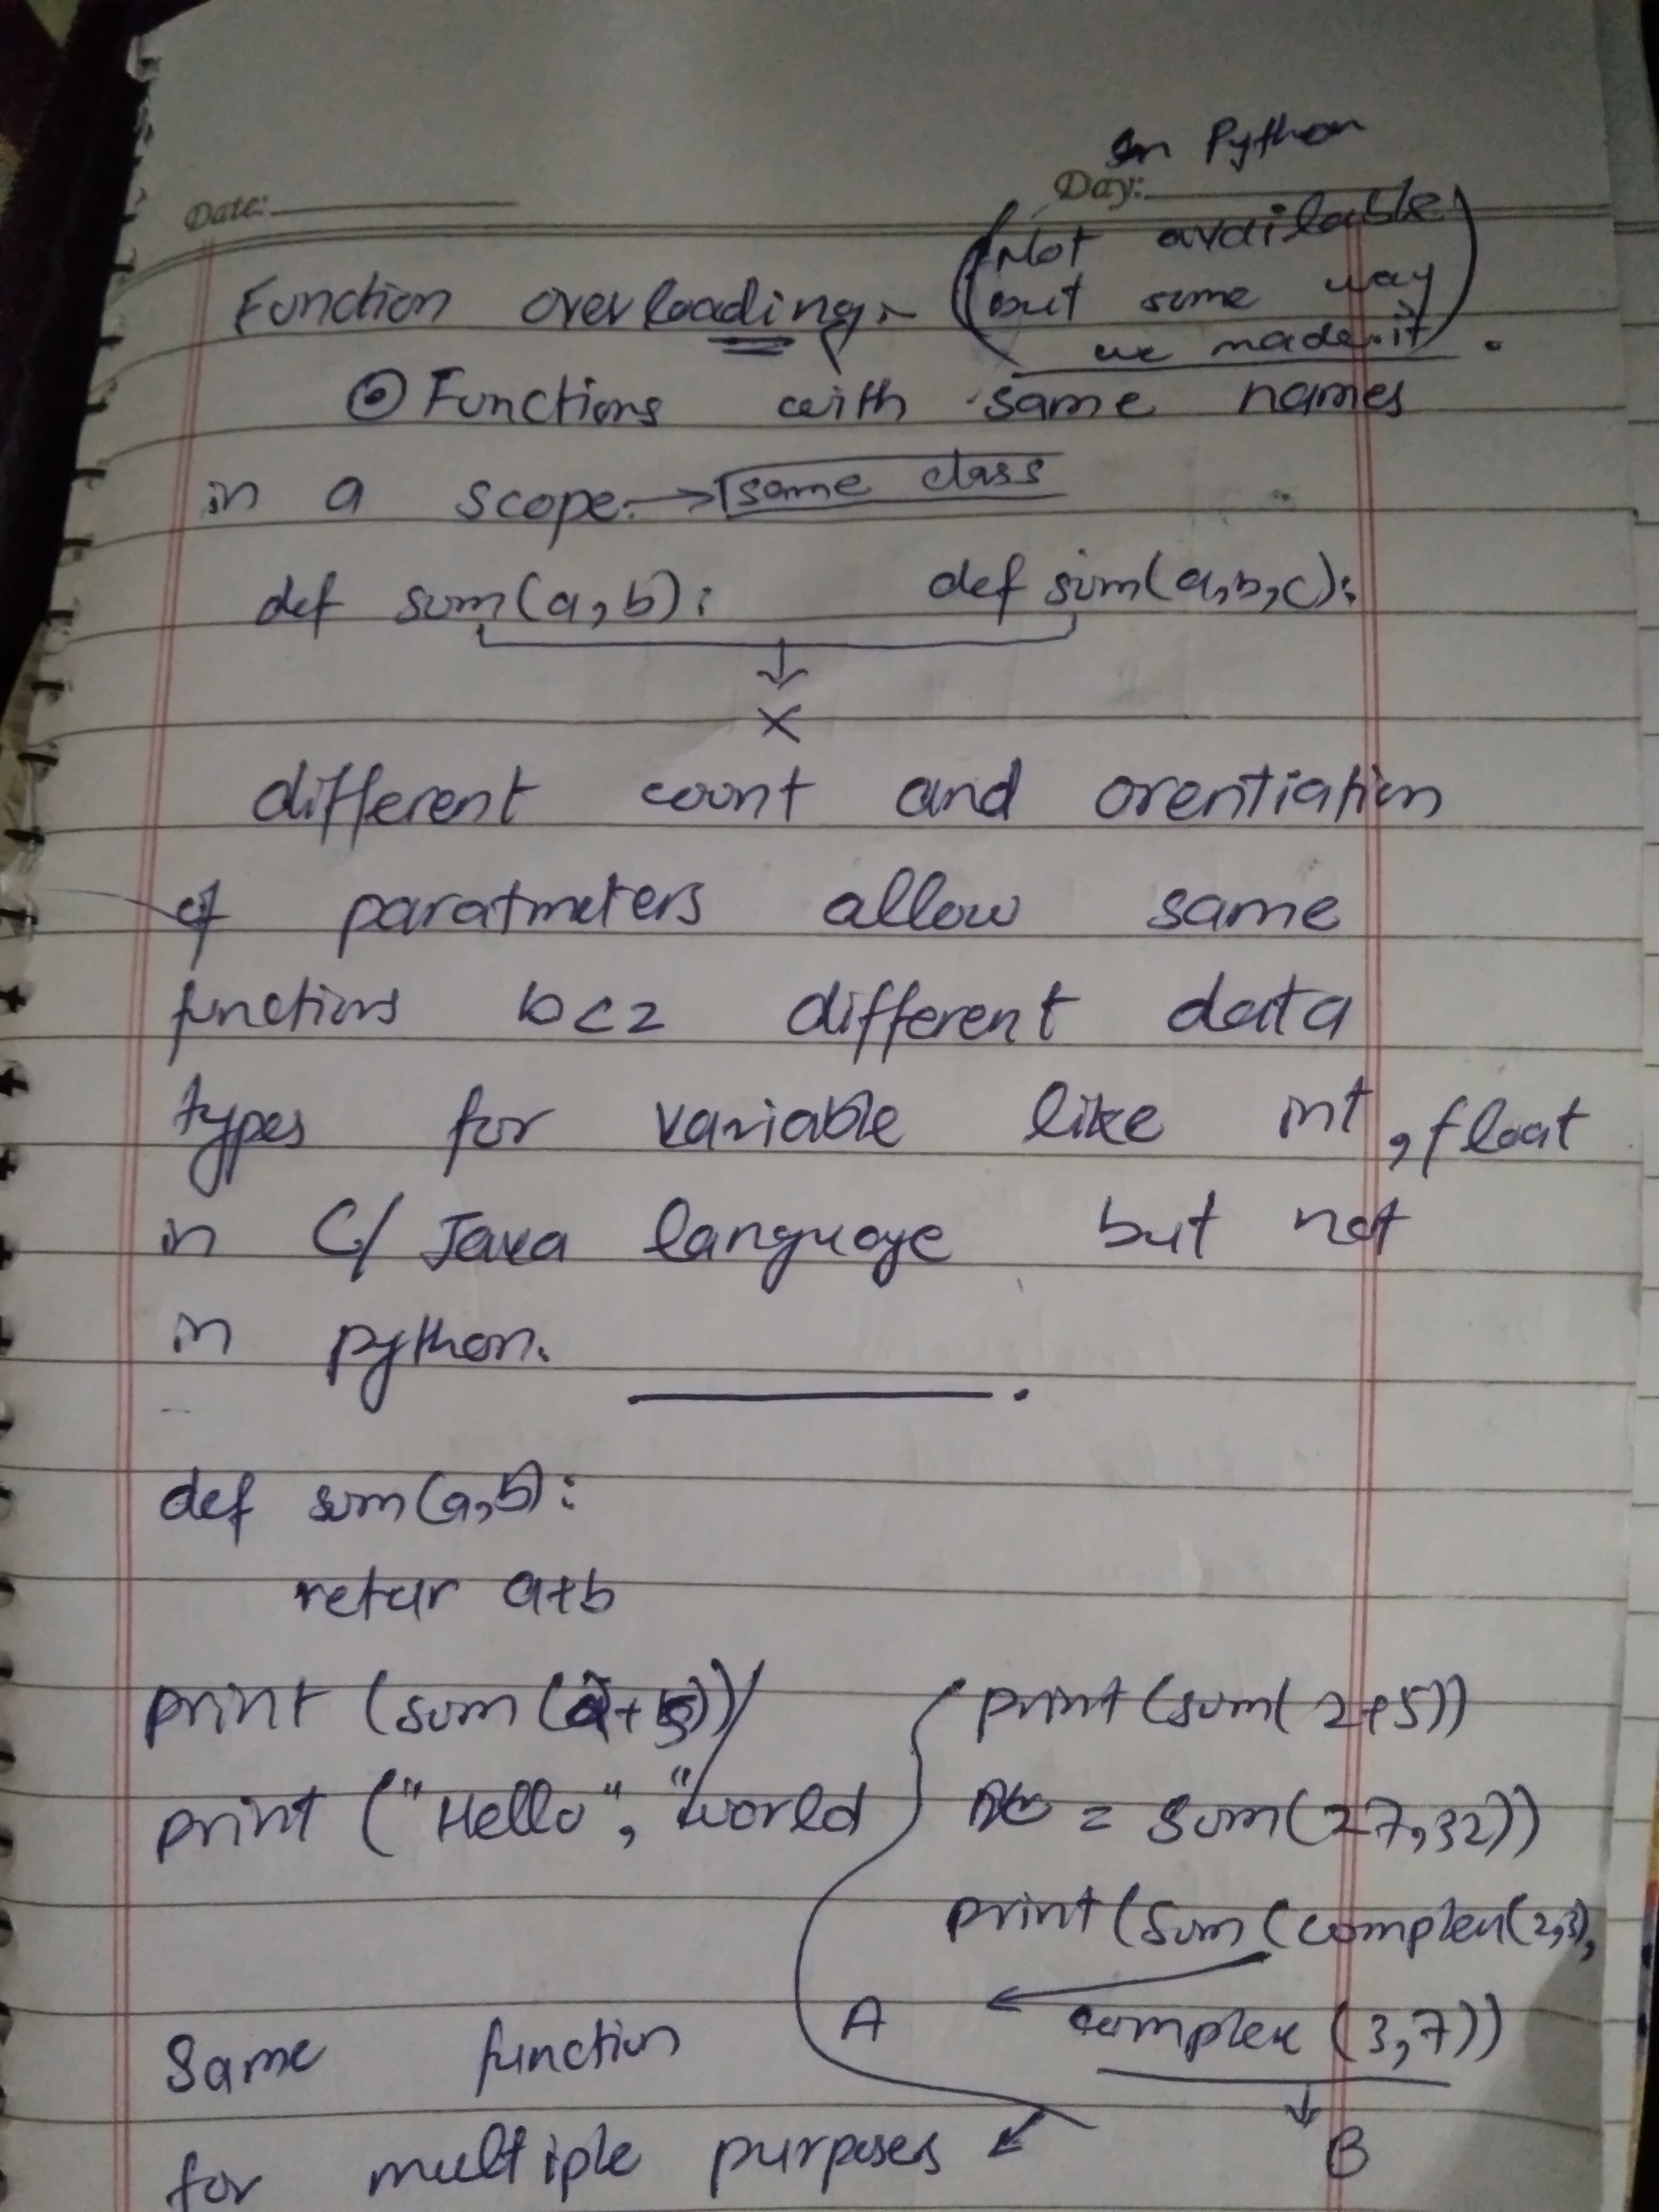 In Python
Date:
Day:
(Not available
but some way
we made it)
Function overloading:-
Functions with same names
in a scope. → same class
def sum(a,b):
def sum(a,b,c):
↓
×
different count and orentiation
of paratmeters allow same
functions bcz different data
types for variable like int, float
in C/Java language but not
in python.
def sum(a,b):
retur a+b
print (sum(
print ("Hello", "world
print (sum(2+5))
= sum(27,32))
print (sum (complex(2,3),
A complex (3,7))
B
Same function
for multiple purposes